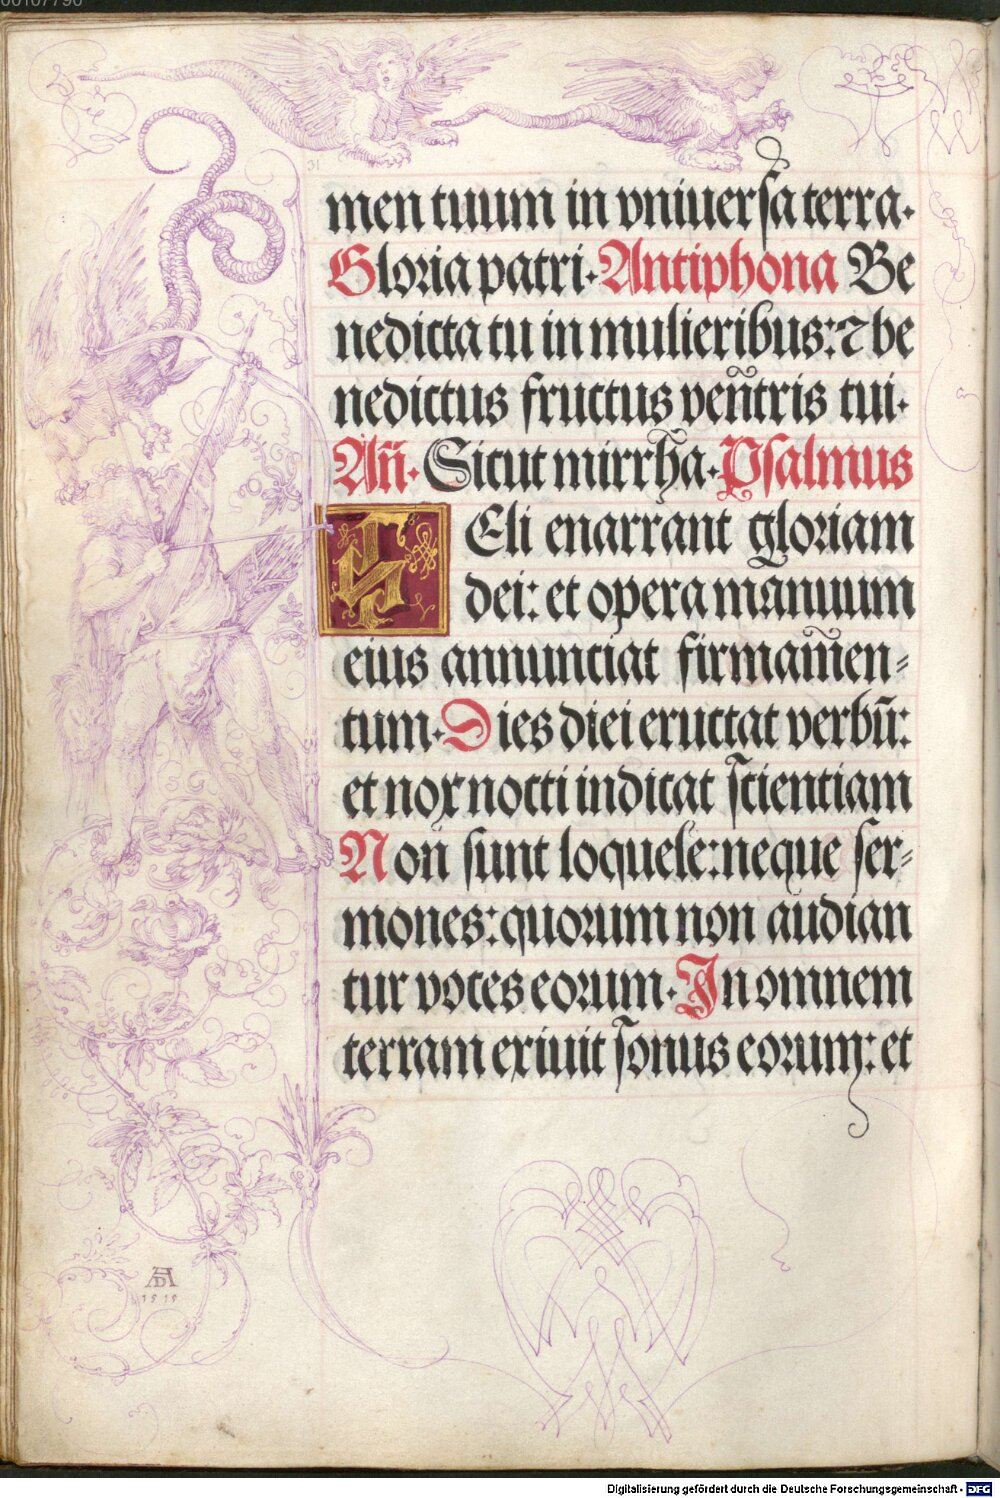 00107790
31
men tuum in vniuersa terra.
Gloria patri. Antiphona Be
nedicta tu in mulieribus: ⁊ be
nedictus fructus ven̄tris tui.
An̄. Sicut mirrha. Psalmus
Celi enarrant gloriam
dei: et opera manuum
eius annunciat firmam̄en-
tum. Dies diei eructat verbū:
et nox nocti indicat scientiam
Non sunt loquele: neque ser-
mones: quorum non audian
tur voces eorum. In omnem
terram exiuit sonus eorum: et
AD
1515
Digitalisierung gefördert durch die Deutsche Forschungsgemeinschaft - DFG